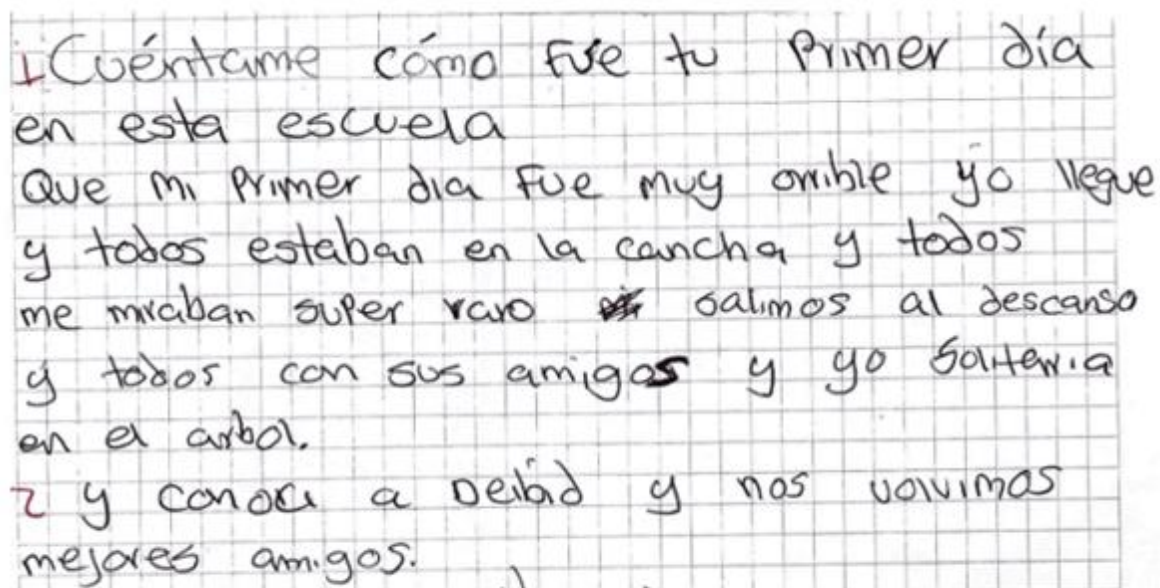 1 Cuéntame cómo fue tu Primer día
en esta escuela
Que mi Primer dia fue muy orrible yo llegue
y todos estaban en la cancha y todos
me miraban super raro salimos al descanso
y todos con sus amigos y yo
en el arbol.
2 y conoci a Deibid y nos volvimos
mejores amigos.